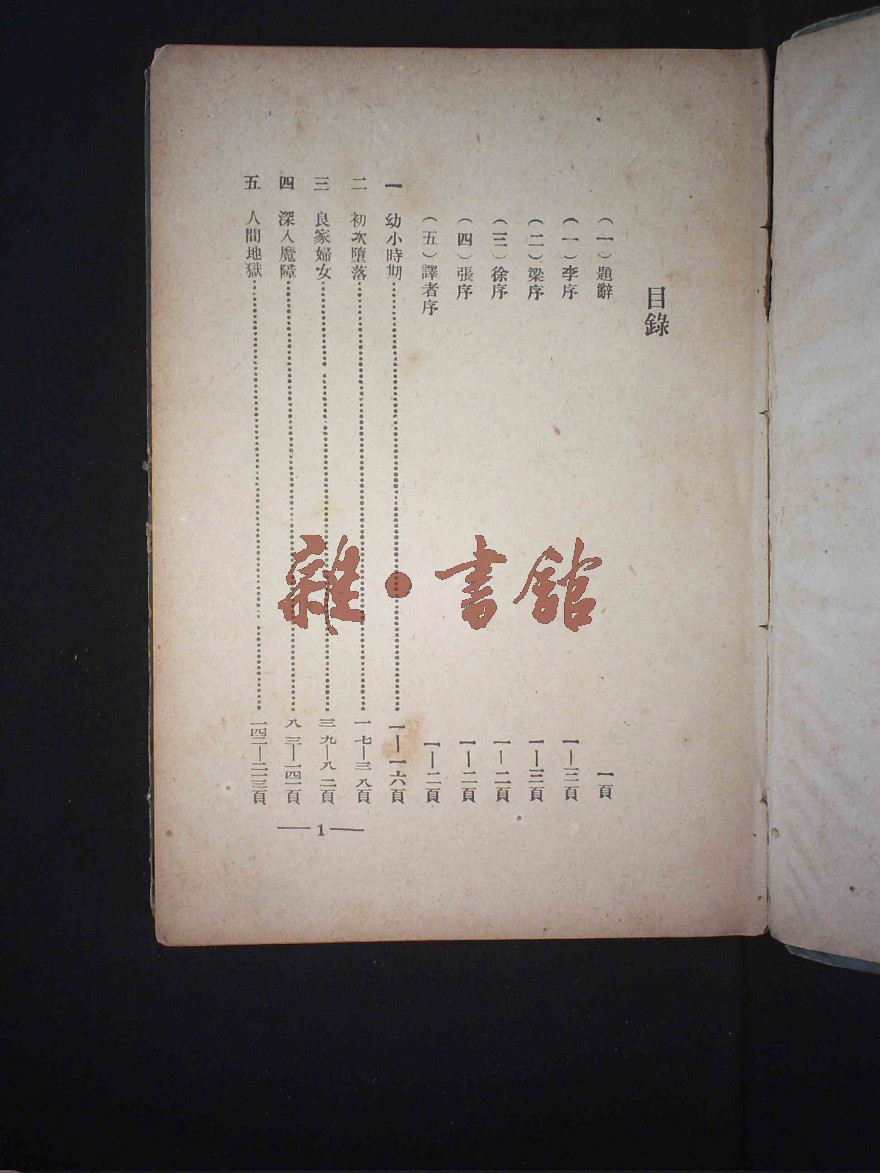 目錄
(一)題辭 一頁
(一)李序 一—三頁
(二)梁序 一—三頁
(三)徐序 一—二頁
(四)張序 一—二頁
(五)譯者序 一—二頁
一 幼小時期 一—一六頁
二 初次墮落 一七—三八頁
三 良家婦女 三九—八二頁
四 深入魔障 八三—一四一頁
五 人間地獄 一四二—二一三頁
— 1 —
雜·書館